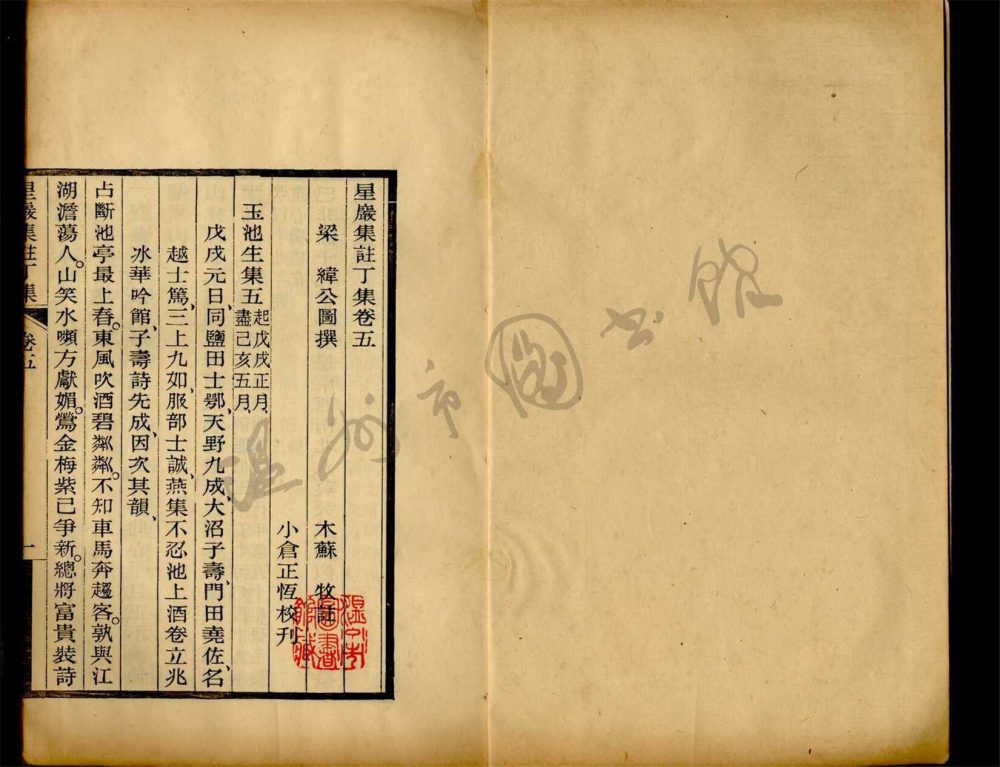 星巖集註丁集卷五
梁 緯公圖撰 木蘇 牧註
小倉正恆校刊
玉池生集五 起戊戌正月、
盡己亥五月、
戊戌元日、同鹽田士鄂、天野九成、大沼子壽、門田堯佐、名
越士篤、三上九如、服部士誠、燕集不忍池上酒卷立兆
氷華吟館、子壽詩先成、因次其韻、
占斷池亭最上春。東風吹酒碧粼粼。不知車馬奔趨客。孰與江
湖澹蕩人。山笑水嚬方獻媚。鶯金梅紫已爭新。總將富貴裝詩
星巖集註丁集 卷五 一
溫州市圖書館藏
溫州市圖書館